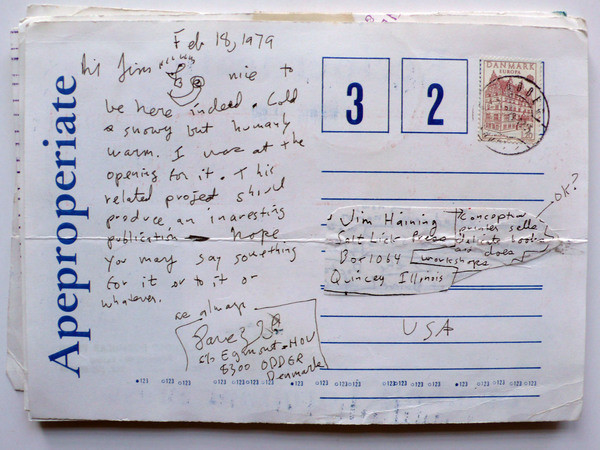 Apeproperiate
Feb 18, 1979
Hi Jim nice to
be here indeed. Cold
& snowy but humanly
warm. I was at the
opening for it. This
related project should
produce an inaresting
publication hope
you may say something
for it or to it or
whatever.
as always
Dave
c/o Egmont-HOJ
8300 ODDER
Denmark
3 2
DANMARK
EUROPA
Jim Haining
Salt Lick Press
Box 1064
Quincey Illinois
conceptual
printer sells
delicate books
or does
workshops
OK?
USA
123 123 123 123 123 123 123 123 123 123 123 123 123 123